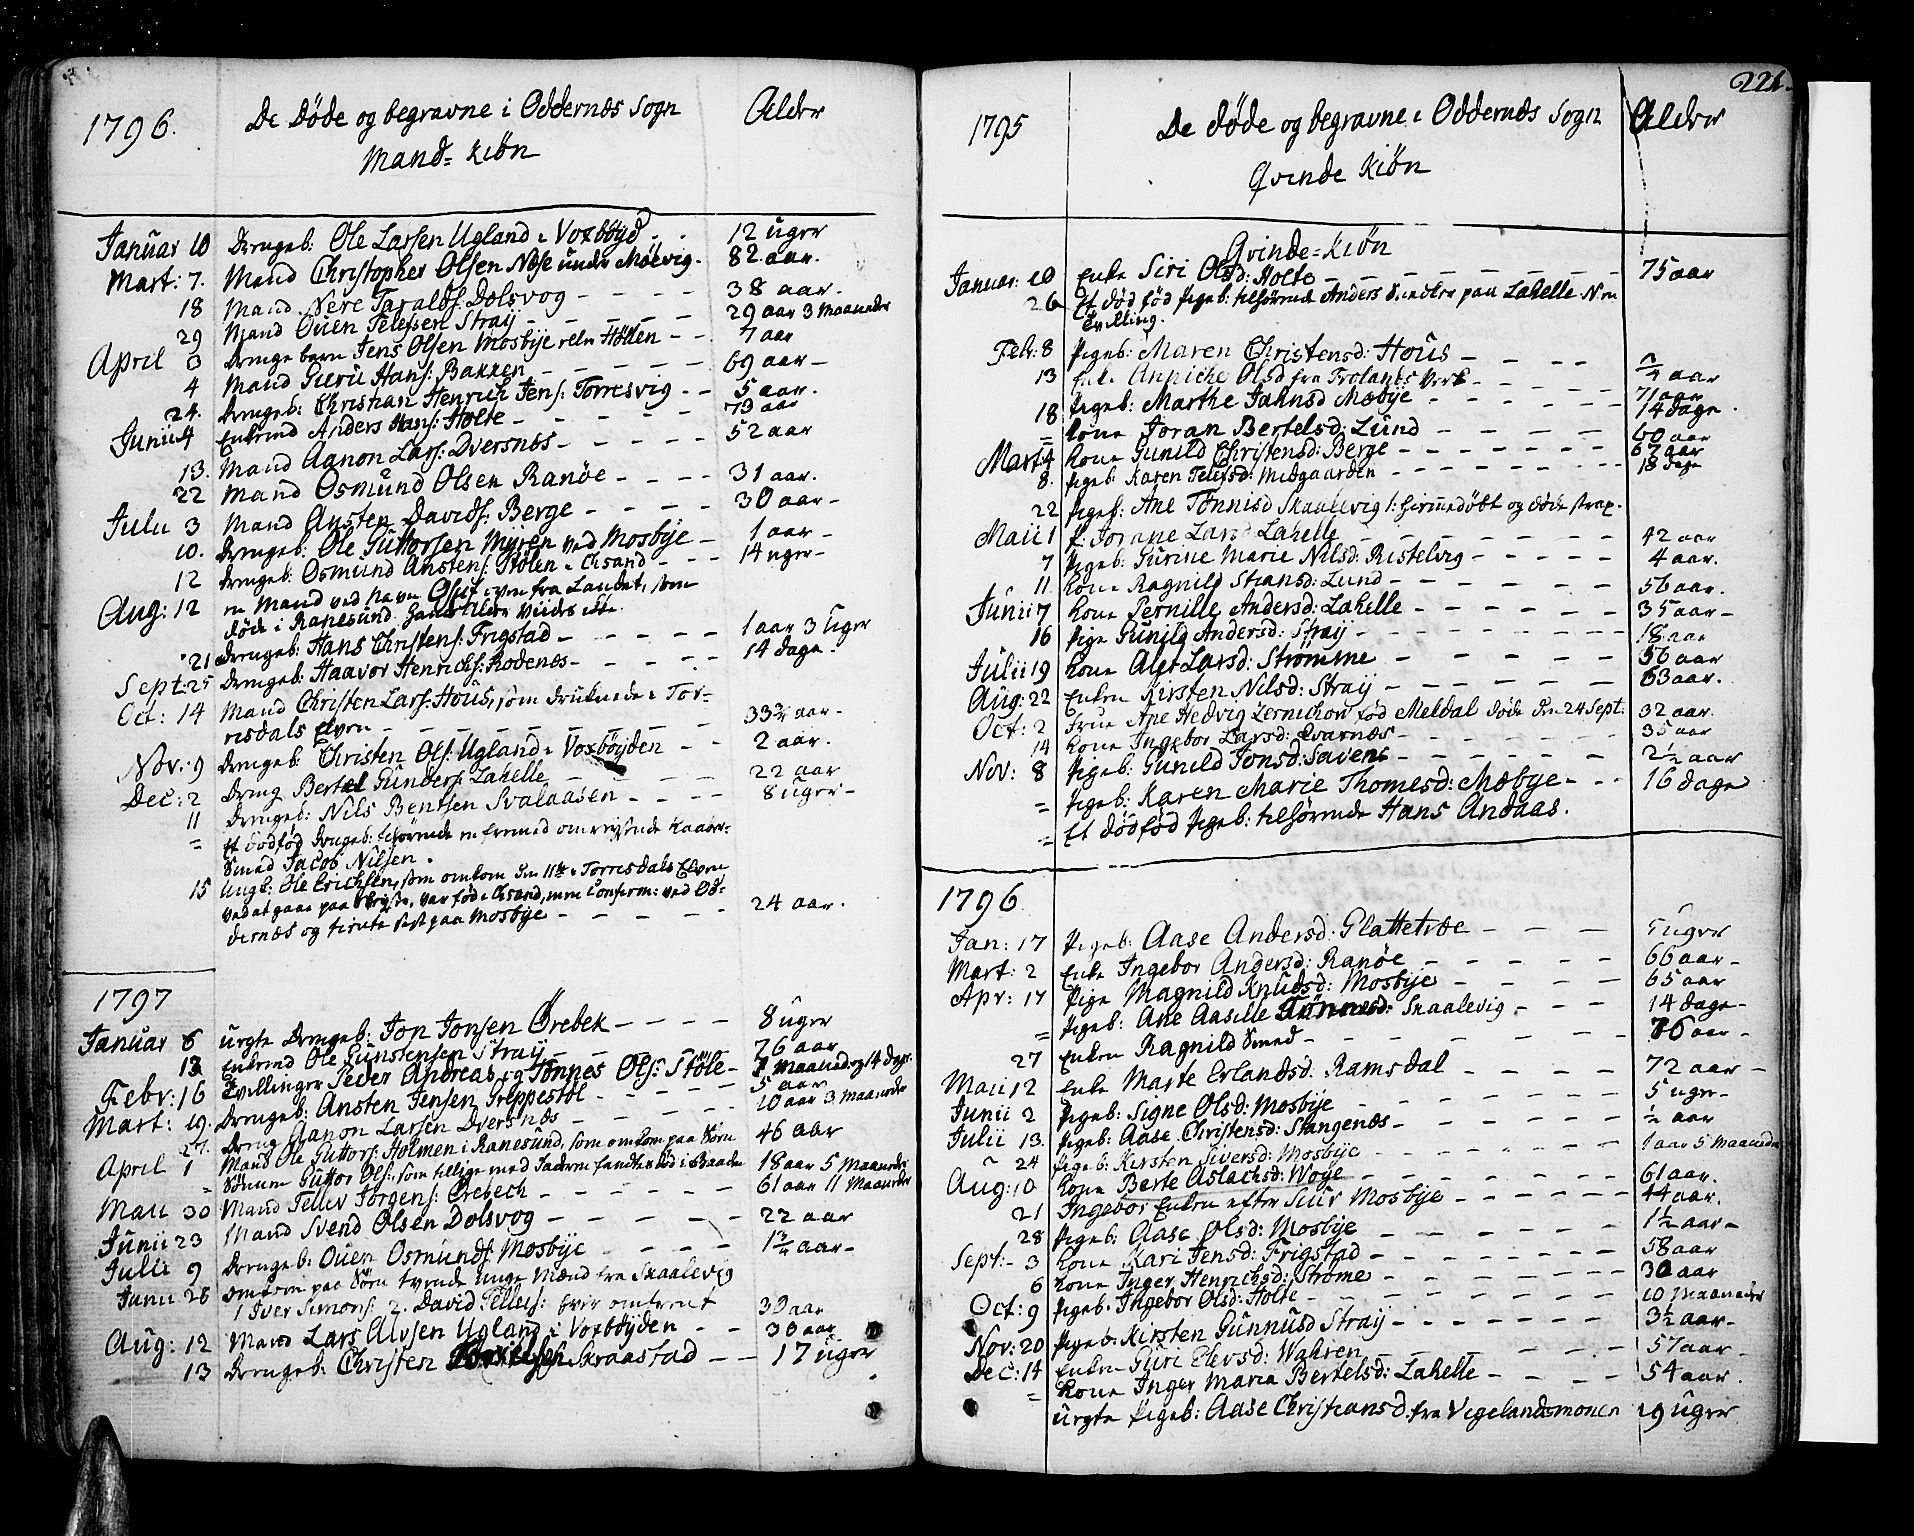 1796.
De Døde og begravne i Oddernæs Sogn
Mand-Kiøn
Alder
Januar 10 Drengeb: Ole Larsen Ugland i Voxbøyd 12 uger
Mart: 7. Mand Christopher Olsen Nøse under Møevig. 82 aar.
18 Mand Nere Taralds: Dolsvog 38 aar.
29 Mand Ouen Tellefsen Straÿ 29 aar 3 Maaneder
April 3 Drenge barn Jens Olsen Mosbÿe 7 aar
4 Mand Guru Hans: Bakken 69 aar
24. Drengeb: Christian Henrich Jens: Torresvig 5 aar.
Junii 4 Enkemd Anders Hans: Holte 79 aar
13. Mand Aanon Lars: Dversnæs 52 aar
22 Mand Osmund Olsen Ranøe 31 aar.
Julii 3 Mand Ansten Davids: Berge 30 aar
10. Drengeb: Ole Guttorsen Myren ved Mosbÿe 1 aar
12 Drengeb: Osmund Anstens: Stølen i Chsand 14 uger
Aug: 12 en Mand ved Navn Oluf fra Landet, som
døde i Ranesund. Hans Alder vides ikke.
21 Drengeb: Hans Christens: Frigstad 1 aar 3 Uger
Sept: 25 Drengeb: Haavor Henrichs: Rodenæs 14 dage.
Oct: 14 Mand Christen Lars: Hous, som druknede i Tor-
risdals Elven 33¾ aar
Nov: 9 Drengeb: Christen Ols: Ugland i Voxbøyden 2 aar.
Dec: 2 Dreng Bertel Gunders: Lahelle 22 aar
11 Drengeb: Nils Bentsen Svalaasen 8 uger
= Et dødfød Drengeb: tilhørende en fremmed omreysende Kaaber-
Smed Jacob Nilsen.
15 Ungk: Ole Erichsen, som omkom den 11te i Torrisdals Elven
ved at gaae paa Iisen, var fød i Chsand, men Conferm: ved Od-
dernæs og tiente sidst paa Mosbÿe 24 aar.
1797
Januar 6 uægte Drengeb: Jon Jonsen Ørebek 8 uger
13 Enkemd Ole Gunstensen Straÿ 76 aar
Febr: 16 Tvillinger Peder Andreas og Tønnes Ols: Støle 1 Maaned og 14 dage.
Mart: 19. Drengeb: Ansten Jensen Greppestøl 5 aar
27. Dreng Aanon Larsen Dversnæs 10 aar 3 Maaneder
April 1 Mand Ole Guttors: Holmen i Ranesund, som omkom paa Søen 46 aar
= Sønnen Guttor Ols: som tillige med Faderen fandtes død i Baaden 18 aar 5 Maaneder
Maii 30 Mand Tellev Jørgens: Ørebech 61 aar 11 Maaneder
Junii 23 Mand Svend Olsen Dolsvog 22 aar
Julii 9 Drengeb: Ouen Osmunds: Mosbÿe 1¾ aar
Junii 26 omkom paa Søen tvende unge Mænd fra Skaalevig
1 Iver Simons: 2. David Tellefs: hver omtrent 30 aar
Aug: 12 Mand Lars Alvsen Ugland i Voxbøyden 30 aar
13 Drengeb: Christen Skraastad 17 uger
221.
1795
De døde og begravne i Oddernæs Sogn
Qvinde Kiøn
Alder
Qvinde-Kiøn
Januar: 10 Enke Siri Olsd: Holte 75 aar
26 Et død fød Pigeb: tilhørende Anders paa Lahelle
Tvilling.
Febr: 8 Pigeb: Maren Christensd: Hous ¾ aar
13 Enke Anniche Olsd fra Frolands Verk 71 aar
18 Pigeb: Marthe Jahnsd Mæbÿe 14 dage.
= Kone Joran Bertelsd: Lund 60 aar
Mart: 4 Kone Gunild Christensd: Berge 67 aar
8. Pigeb: Karen Tellefsd: Midgaarden 18 dage
22 Pigeb: Ane Tønnisd Skaalevig /: hiemmedøbt og døde strax.
Maii 1 K: Joranne Larsd Lahelle 42 aar
7 Pigeb: Gurine Marie Nilsd: Kistelvig 4 aar.
11 Kone Ragnild Stiansd: Lund 56 aar.
Junii 7 Kone Pernille Andersd: Lahelle 35 aar
16 Pige Gunild Andersd: Straÿ 18 aar
Julii 19 Kone Alet Larsd: Strømme 56 aar
Aug: 22 Enken Kirsten Nilsd: Straÿ 63 aar.
Oct: 2 Frue Ane Hedvig Zernichow fød Meldal døde den 24 Sept: 32 aar.
14 Kone Ingebor Larsd: Qvarnæs 35 aar
Nov: 8 Pigeb: Gunild Jonsd: Savens 2½ aar
= Pigeb: Karen Marie Thomesd: Mæbye 16 dage
= Et dødfød Pigeb: tilhørende Hans Andaas.
1796
Jan: 17 Pigeb: Aase Andersd: Glattetræ 5 uger
Mart: 2 Enke Ingebor Andersd: Ranøe 66 aar
Apr: 17 Pige Magnild Knudsd: Mosbÿe 65 aar
= Pigeb: Ane Aasille Tønnesd: Skaalevig 14 dage
27 Enken Ragnild Smed 76 aar
Maii 12 Enke Marte Erlandsd: Ramsdal 72 aar
Junii 2 Pigeb: Signe Olsd: Mosbÿe 5 uger
Julii 13. Pigeb: Aase Christensd: Stangenæs ½ aar
24 Pigeb: Kirsten Siversd: Mosbÿe 1 aar 5 Maaneder
Aug: 10 Kone Berte Aslachsd: Woge 61 aar.
21 Ingebor Enken efter Siur Mosbÿe 44 aar.
28 Pigeb: Aase Olsd: Mosbÿe 1½ aar
Sept: 3 Kone Kari Jensd: Frigstad 58 aar
6 Kone Inger Henrichsd: Strømme 30 aar
Oct: 9 Pigeb. Ingebor Olsd: Holte 10 Maaneder
Nov: 20 Pigeb: Kirsten Gunnusd Straÿ 3½ aar
Dec: 14 Enken Guri Elevsd: Wahren 57 aar
= Kone Inger Maria Bertelsd: Lahelle 54 aar.
uægte Pigeb: Aase Christiansd fra Vigelandsmonen 19 uger